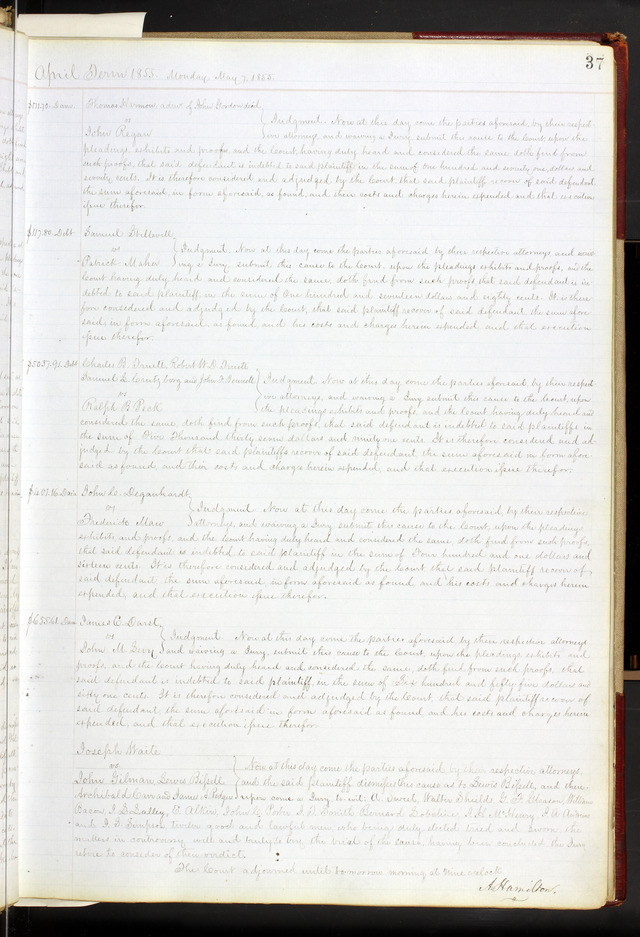 37
April Term 1855. Monday May 7, 1855.
Thomas Harmon, admr of John Gordon decd,
vs
John Regan
Judgment. Now at this day come the parties aforesaid, by their respect-
ive attorneys, and waiving a Jury, submit the cause to the Court, upon the
pleadings exhibits and proofs, and the Court, having duly heard and considered the same doth find from
such proofs, that said defendant is indebted to said plaintiff in the sum of one hundred and seventy one dollars and
seventy cents. It is therefore considered and adjudged by the Court, that said plaintiff recover of said defendant
the sum aforesaid, in form aforesaid, as found, and their costs and charges herein expended and that execution
issue therefor.
$117.80. Debt
Samuel Stillwell
vs
Patrick Maher
Judgment. Now at this day come the parties aforesaid by their respective attorneys and waiv-
ing a Jury submit this cause to the Court, upon the pleadings exhibits and proofs, and the
Court having duly heard and considered the same doth find from such proofs that said defendant is in-
debted to said plaintiff in the sum of One hundred and seventeen dollars and eighty cents. It is there-
fore considered and adjudged by the Court, that said plaintiff recover of said defendant the sum afore-
said, in form aforesaid, as found, and his costs and charges herein expended and that execution
issue therefor.
$5037.91. Debt
Charles B. Truitt, Robert W. D. Truitt
and John F.
vs
Ralph B Peck
Judgment Now at this day come the parties aforesaid, by their respect-
ive attorneys, and waiving a Jury submit the cause to the Court, upon
the pleadings exhibits and proofs, and the Court having duly heard and
considered the same, doth find from such proofs, that said defendant is indebted to said plaintiffs in
the sum of Five Thousand thirty seven dollars and ninety one cents. It is therefore considered and ad-
judged by the Court that said plaintiffs recover of said defendant, the sum aforesaid in form afore-
said as found, and their costs and charges herein expended, and that execution issue therefor.
$401.16 Dam
John L. Deganhardt,
vs
Frederick Maw
Judgment. Now at this day come the parties aforesaid by their respective
attorneys, and waiving a Jury, submit this cause to the Court, upon the pleadings
exhibits and proofs, and the Court having duly heard and considered the same, doth find from such proofs,
that said defendant is indebted to said plaintiff in the sum of Four hundred and one dollars and
sixteen cents. It is therefore considered and adjudged by the Court that said plaintiff recover of
said defendant the sum aforesaid, in form aforesaid as found, and his costs and charges herein
expended, and that execution issue therefor.
$655.61. Dam
James C. Darst,
vs
John M
Judgment Now at this day come the parties aforesaid, by their respective attorneys
and waiving a Jury, submit this cause to the Court, upon the pleadings exhibits and
proofs, and the Court having duly heard and considered the same, doth find from such proofs, that
said defendant is indebted to said plaintiff, in the sum of Six hundred and fifty five dollars and
sixty one cents. It is therefore considered and adjudged by the Court that said plaintiff recover of
said defendant the sum aforesaid in form aforesaid as found, and his costs and charges herein
expended, and that execution issue therefor.
Joseph Waite
vs.
John Gilman, Lewis Bissell,
Archibald Carr and James
Now at this day come the parties aforesaid by their respective attorneys,
and the said plaintiff dismisses this cause as to Lewis Bissell, and there-
upon come a Jury to wit: Sweet, Walter Shields G. Gleason William
Bacon, Aiken, John Smith Bernard McHenry
and Simpson twelve good and lawful men who being duly elected tried and sworn the
matters in controversy well and truly to try, the trial of the cause, having been concluded the Jury
retire to consider of their verdict.
The Court adjourned until tomorrow morning at Nine o'clock
A. Hamilton.